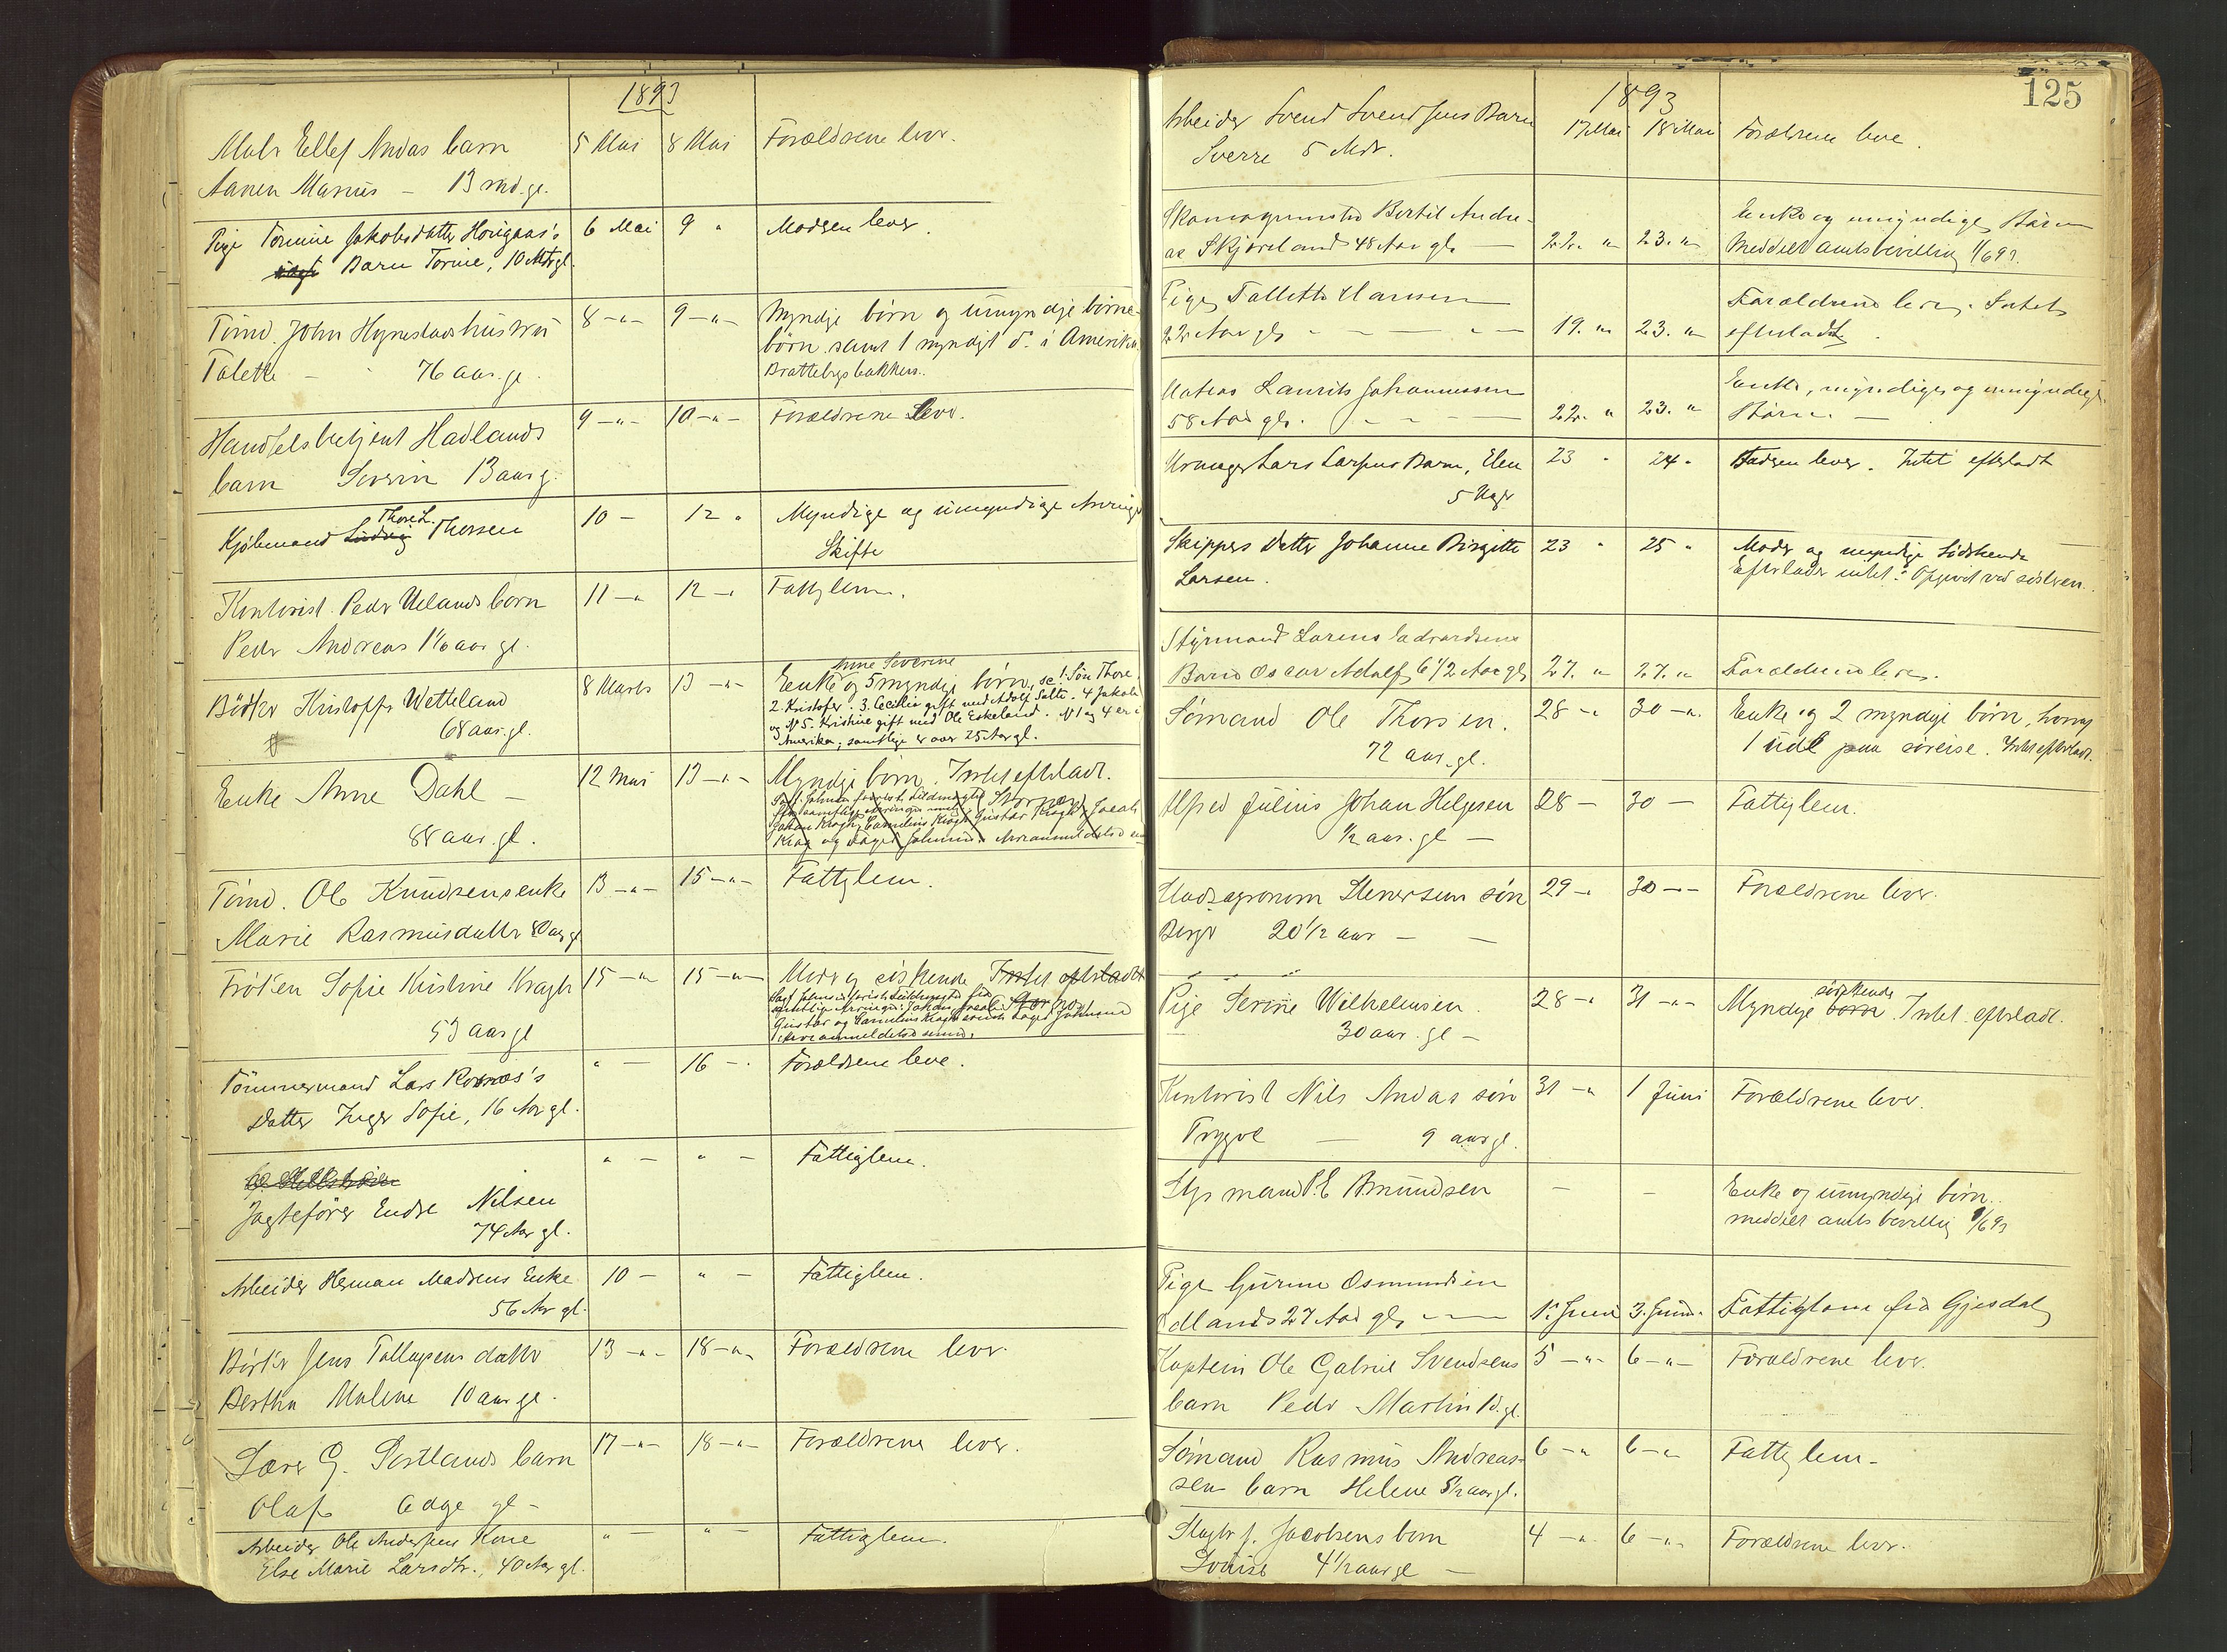 1893
Maler Ellef Andas barn 5 Mai 8 Mai Forældrene lever.
Aanen Marius – 13 md. gl.
Pige Tomine Jakobsdatter Hovigaas's 6 Mai 9 " Moderen lever.
Barn Tomine, 10 Mdr gl.
Tømd. John Hognestads hustru 8 –"– 9 –"– Myndige børn og umyndige børne-
Talette – 76 aar. gl. børn samt 1 myndigt d. i Amerika.
Brattebergbakken.
Handelsbetjent Hadlands 9 –"– 10 –"– Forældrene lever.
barn Severin 13 aar g.
Thore L.
Kjøbmand Ludvig Thorsen 10 – 12 " Myndige og umyndige Arvinger
Skifte
Kontorist Peder Uelands barn 11 –" 12 –" Fattiglem.
Peder Andreas 1 1/6 aar gl.
Anne Severine
Bødker Kristoffer Wetteland 8 Marts 13 –"– Enke og 5 myndige børn, se: 1. Søn Thore,
68 aar. gl. 2. Kristofer. 3. Cecilia gift med Adolf Salte. 4 Jakob
og N 5. Kristine gift med Ole Eskeland. N 1 og 4 er i
Amerika, samtlige er over 25 Aar gl.
Enke Anne Dahl – 12 Mai 13 –"– Myndige børn. Intet efterladt.
88 aar. gl.
Tømd. Ole Knudsens enke 13 –"– 15 –"– Fattiglem.
Marie Rasmusdatter 80 aar gl
Frøken Sofie Kristine Kragh 15 –"– 15 –"– Moder og søskende Intet efterladt
53 aar gl
Gustav og Camilius Kragh samt Aaget Johnsen
Tømmermand Lars Rosnæs's " – 16 –" Forældrene leve.
Datter Inger Sofie, 16 Aar gl.
Jagtefører Endre Nilsen " – " – Fattiglem.
74 Aar gl.
Arbeider Herman Madsens Enke 10 – " – Fattiglem.
56 Aar gl.
Bødker Jens Tollagsens datter 13 –"– 18 –"– Forældrene lever.
Bertha Malene 10 aar gl.
Lærer G. Sortlands barn 17 –"– 18 –"– Forældrene lever.
Olaf 6 dage gl –
Arbeider Ole Andersens Kone " – " – Fattiglem.
Else Marie Larsdtr., 40 Aar gl.
125
1893
Arbeider Svend Svendsens Barn 17 Mai 18 Mai Forældrene leve.
Sverre 5 Mdr.
Skomagermester Bertil Andre- Enke og umyndige Børn
as Skjæveland 48 Aar gl. 22. " 23. " Meddelt amtsbevilling 1/6 93.
Pige Tallette Hansen Forældrene leve. Intet
22 Aar gl. 19. " 23. " efterladt.
Matias Laurits Johannessen Enke, myndige og umyndige
58 Aar gl. 22. " 23. " Børn. –
Urmager Lars Larsens Barn, Elen 23 " 24 " Faderen lever. Intet efterladt
5 Uger
Skippers Datter Johanne Birgitte 23 " 25 " Moder og myndige Sødskende
Larsen. Efterlader intet. Opgivet ved søsteren.
Styrmand Lorens Edvardsens
Barn Oscar Adolf, 6 1/2 Aar gl 27. " 27. " Forældrene leve.
Sømand Ole Thorsen. 28 –" 30 –". Enke og 2 myndige børn, hvoraf
72 aar. gl. 1 ude paa søreise. Intet efterladt.
Alfred Julius Johan Helgesen 28 – 30 – Fattiglem.
1/2 aar. gl –
Stadsagronom Stenersens søn 29 –" 30 –– Forældrene lever.
Birger 20 1/2 aar – –
søskende
Pige Serine Wilhelmsen. 28 –" 31 –"– Myndige børn. Intet efterladt.
30 aar. gl –
Kontorist Nils Andas søn 31 –" 1 Juni Forældrene lever.
Trygve – 9 aar gl.
Styrmand P. E Amundsen – – Enke og umyndige børn.
meddelt amtsbevilling 9/6 93
Pige Gurine Osmundsen
Edland 27 Aar gl. 1. Juni 3. Juni. Fattiglem fra Gjesdal
Kaptein Ole Gabriel Svendsens 5 –"– 6 –"– Forældrene lever.
barn Peder Martin 1 d. gl.
Sømand Rasmus Andreas- 6 –" 6 –" Fattiglem –
sen barn Helene 5 1/2 aar gl.
Slagter J. Jacobsens barn 4 –" 6 –"– Forældrene lever.
Louise 4 1/2 aar gl –